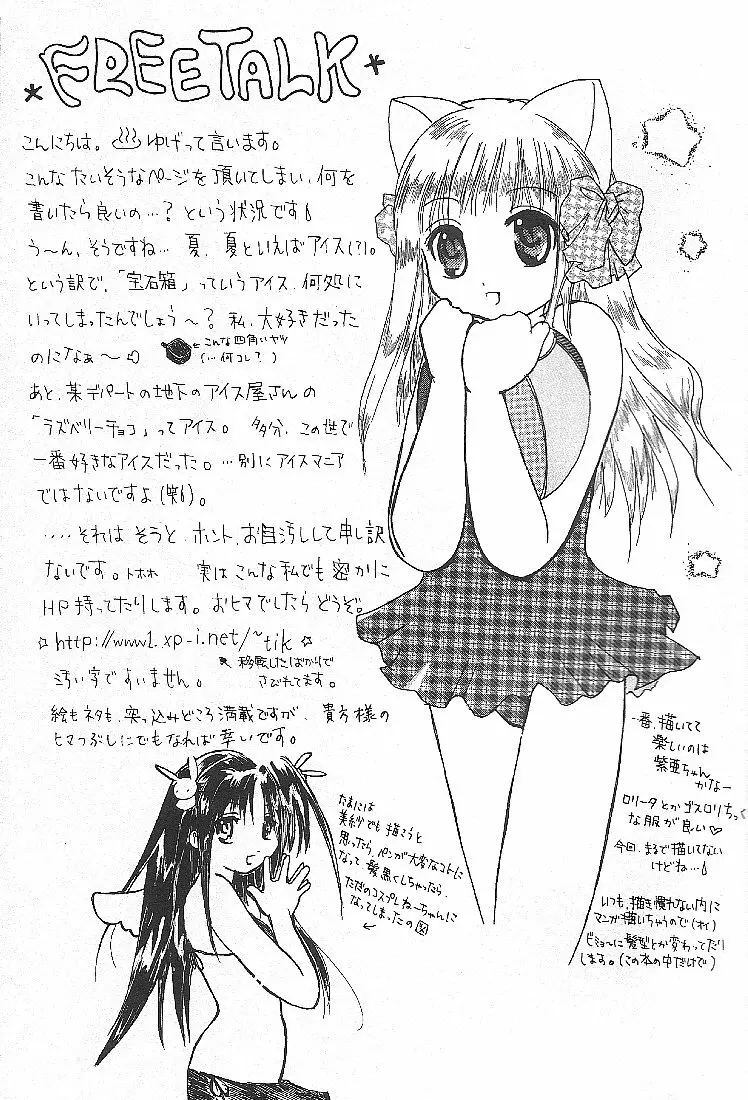 FREE TALK
こんにちは。♨ゆげって言います。
こんなたいそうなページを頂いてしまい、何を
書いたら良いの…？という状況です
う〜ん、そうですね… 夏、夏といえばアイス(?)。
という訳で、「宝石箱」っていうアイス、何処に
いってしまったんでしょう〜？私、大好きだった
のになぁ〜
←こんな四角いヤツ
(…何コレ？)
あと、某デパートの地下のアイス屋さんの
「ラズベリーチョコ」ってアイス。多分、この世で
一番好きなアイスだった。…別にアイスマニア
ではないですよ(笑)。
‥‥それはそうと、ホント、お目汚しして申し訳
ないです。トホホ 実はこんな私でも密かに
HP持ってたりします。おヒマでしたらどうぞ。
☆http://www1.xp-i.net/~tik☆
移転したばかりで
さびれてます。
汚い字ですいません。
絵もネタも、突っ込みどころ満載ですが、貴方様の
ヒマつぶしにでもなれば幸いです。
一番、描いてて
楽しいのは
紫亜ちゃん
かなー
ロリータとかゴスロリちっく
な服が良い♡
今回、まるで描いてない
けどね…
いつも、描き慣れない内に
マンガ描いちゃうので(オイ)
ビミョーに髪型とか変わってたり
します。(この本の中だけで)
たまには
美紗でも描こうと
思ったら、ペンが大変なコトに
なって、髪黒くしちゃったら、
ただのコスプレねーちゃんに
なってしまったの図